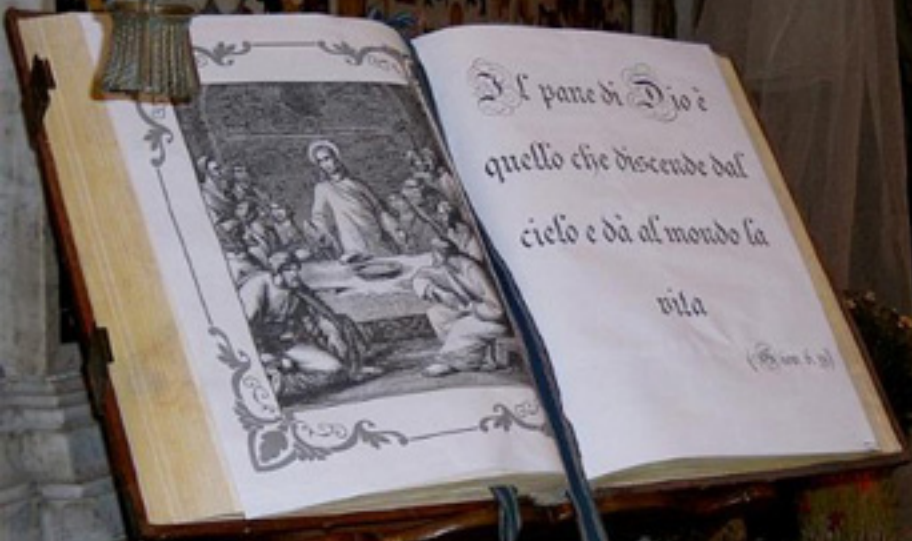 Il pane di Dio è
quello che discende dal
cielo e dà al mondo la
vita